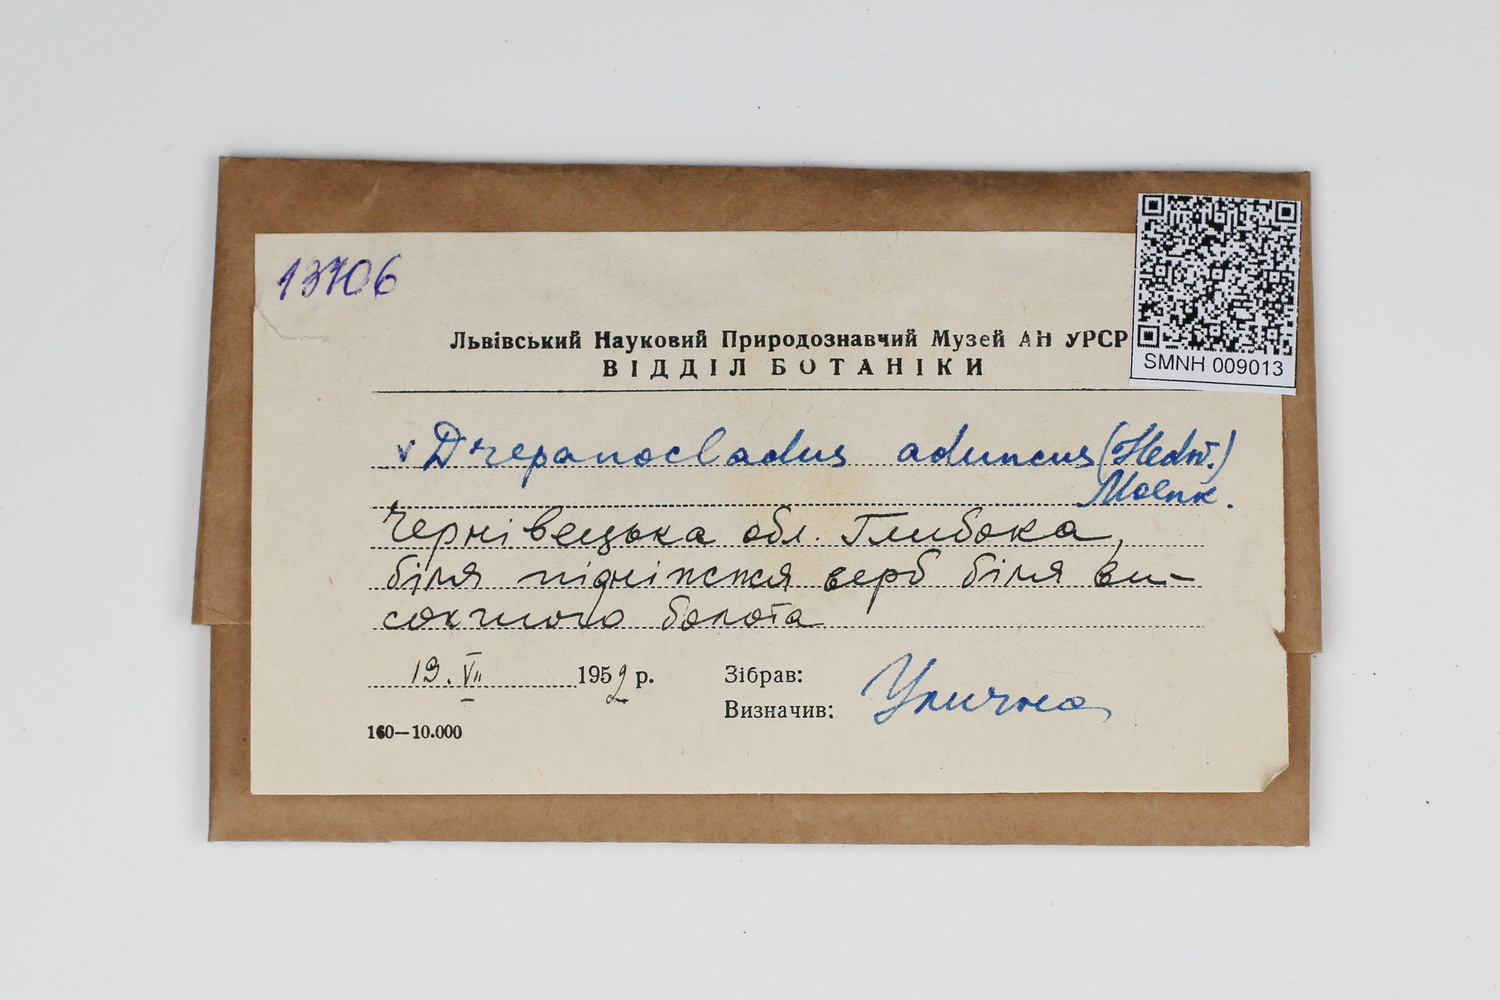 13706
Львівський Науковий Природознавчий Музей АН УРСР
ВІДДІЛ БОТАНІКИ
SMNH 009013
v Drepanocladus aduncus (Hedw.)
Moenk.
Чернівецька обл. Глибока,
біля підніжжя верб біля ви-
сохшого болота
19. VII 1952 р.
Зібрав:
Визначив: Улична
160—10.000